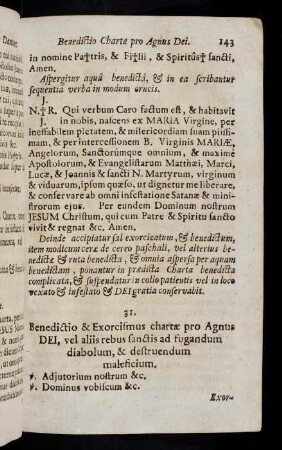 Benedictio Chartæ pro Agnus Dei. 143
in nomine Pa†tris, & Fi†lii, & Spiritûs† sancti,
Amen.
Aspergitur aquâ benedictâ, & in ea scribantur
sequentia verba in modum crucis.
J.
N.†R. Qui verbum Caro factum est, & habitavit
J. in nobis, nascens ex MARIA Virgine, per
ineffabilem pietatem, & misericordiam suam piissi-
mam, & per intercessionem B. Virginis MARIÆ,
Angelorum, Sanctorúmque omnium, & maximè
Apostolorum, & Evangelistarum Matthæi, Marci,
Lucæ, & Joannis & sancti N. Martyrum, virginum
& viduarum, ipsum quæso, ut dignetur me liberare,
& conservare ab omni infestatione Satanæ & mini-
strorum ejus. Per eundem Dominum nostrum
JESUM Christum, qui cum Patre & Spiritu sancto
vivit & regnat &c. Amen.
Deindè accipiatur sal exorcizatum, & benedictum,
item modicum ceræ de cereo paschali, vel alterius be-
nedictæ & ruta benedicta, & omnia aspersa per aquam
benedictam, ponantur in prædicta Charta benedicta
complicata, & suspendatur in collo patientis vel in loco
vexato & infestato & DEI gratia conservabit.
31.
Benedictio & Exorcismus chartæ pro Agnus
DEI, vel aliis rebus sanctis ad fugandum
diabolum, & destruendum
maleficium.
℣. Adjutorium nostrum &c.
℣. Dominus vobiscum &c.
Exor-